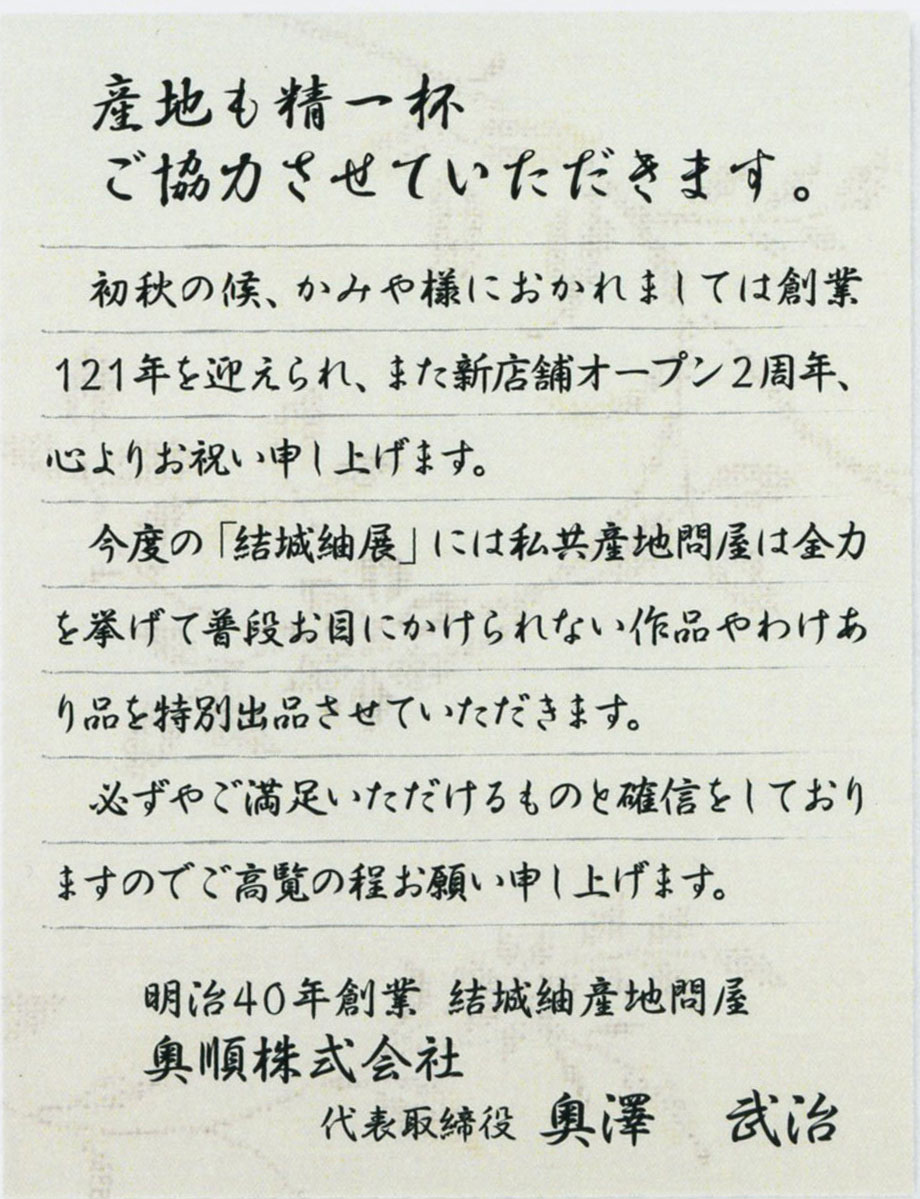 産地も精一杯
ご協力させていただきます。
初秋の候、かみや様におかれましては創業
121年を迎えられ、また新店舗オープン2周年、
心よりお祝い申し上げます。
今度の「結城紬展」には私共産地問屋は全力
を挙げて普段お目にかけられない作品やわけあ
り品を特別出品させていただきます。
必ずやご満足いただけるものと確信をしており
ますのでご高覧の程お願い申し上げます。
明治40年創業 結城紬産地問屋
奥順株式会社
代表取締役 奥澤 武治